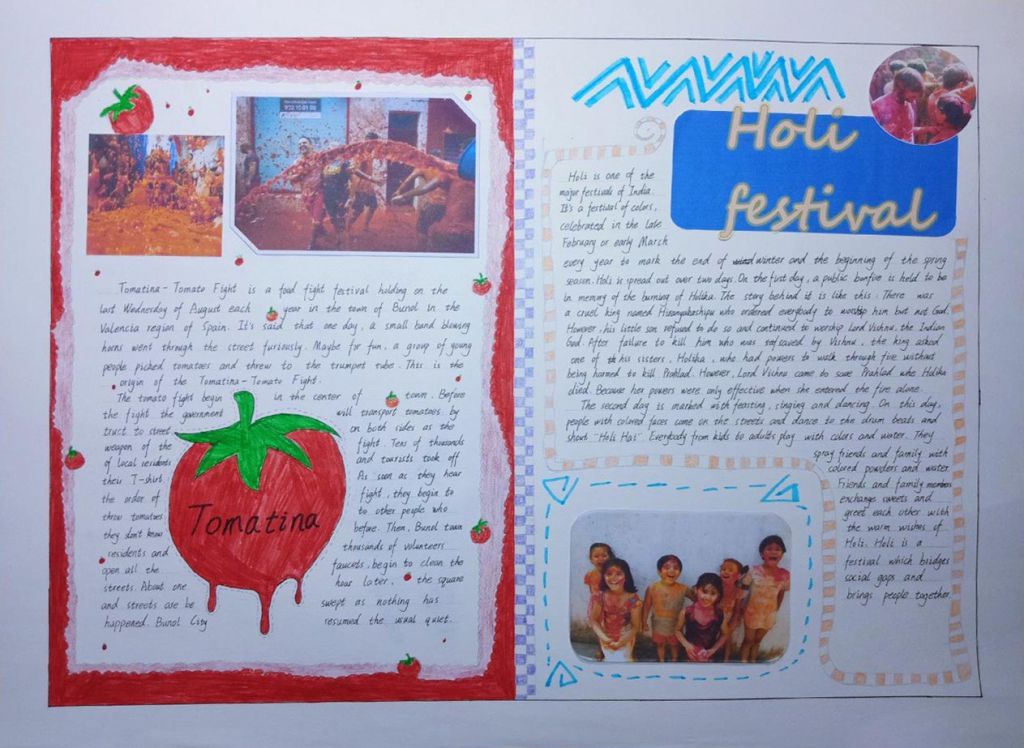 Tomatina-Tomato Fight is a food fight festival holding on the
last Wednesday of August each year in the town of Bunol in the
Valencia region of Spain. It's said that one day, a small band blowing
horns went through the street furiously. Maybe for fun, a group of young
people picked tomatoes and threw to the trumpet tube. This is the
origin of the Tomatina-Tomato Fight.
The tomato fight begin in the center of town. Before
the fight the government will transport tomatoes by
trust to street on both sides as the
weapon of the fight. Tens of thousands
of local residents and tourists took off
their T-shirt. As soon as they hear
the order of fight, they begin to
throw tomatoes to other people who
they don't know before. Then, Bunol town
residents and thousands of volunteers
open all the faucets, begin to clean the
streets. About one hour later, the square
and streets are be swept as nothing has
happened. Bunol City resumed the usual quiet.
Tomatina
Holi
festival
Holi is one of the
major festivals of India.
It's a festival of colors,
celebrated in the late
February or early March
every year to mark the end of winter and the beginning of the spring
season. Holi is spread out over two days. On the first day, a public bonfire is held to be
in memory of the burning of Holika. The story behind it is like this: There was
a cruel king named Hiranyakashipu who ordered everybody to worship him but not God.
However, his little son refused to do so and continued to worship Lord Vishnu, the Indian
God. After failure to kill him who was saved by Vishnu, the king asked
one of his sisters, Holika, who had powers to walk through fire without
being harmed to kill Prahlad. However, Lord Vishnu came to save Prahlad whe Holika
died. Because her powers were only effective when she entered the fire alone.
The second day is marked with feasting, singing and dancing. On this day,
people with colored faces come on the streets and dance to the drum beats and
shout "Holi Hai". Everybody from kids to adults play with colors and water. They
spray friends and family with
colored powders and water.
Friends and family members
exchange sweets and
greet each other with
the warm wishes of
Holi. Holi is a
festival which bridges
social gaps and
brings people together.